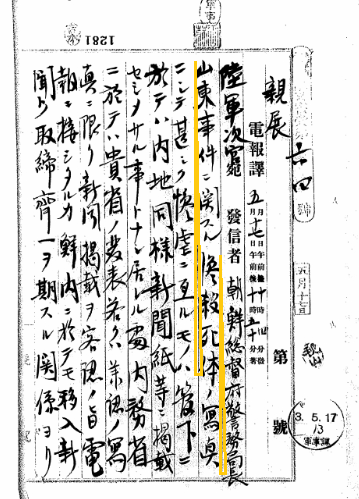 1281
軍事
親展
號
五月十七日
電報譯
五月十七日午前後十時
五月十七日午前後十時五十分著
第 號
陸軍次官宛 發信者 朝鮮總督府警務局長
山東事件ニ関スル惨殺死体ノ寫真
ニシテ甚シク惨虐ニ亘ルモノハ管下ニ
於テハ内地同様新聞紙等ニ掲載
セシメサル事トナシ居レル處内務省
ニ於テハ貴省ノ発表若クハ承認ノ寫
真ニ限リ新聞掲載ヲ容認ノ旨電
報ニ接シタルカ鮮内ニ於テモ移入新
聞ノ取締齊一ヲ期スル関係ヨリ
3.5.17
軍事課